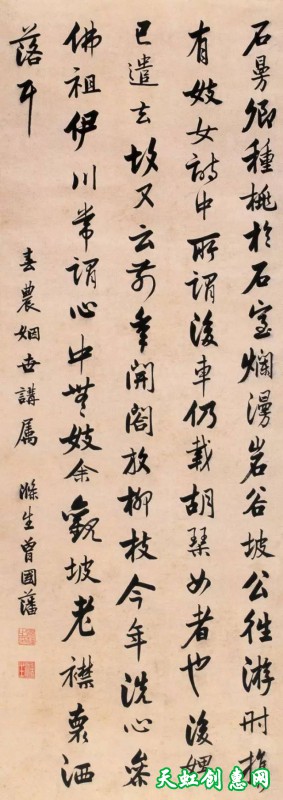 石曼卿種桃於石室爛漫岩谷坡公往游時携
有妓女詩中所謂後車仍載胡琴女者也後
已遣去故又云前年開閣放柳枝今年洗心參
佛祖伊川常謂心中無妓余觀坡老襟褱洒
落耳
春農姻世講属 滌生曾國藩
天虹创惠网